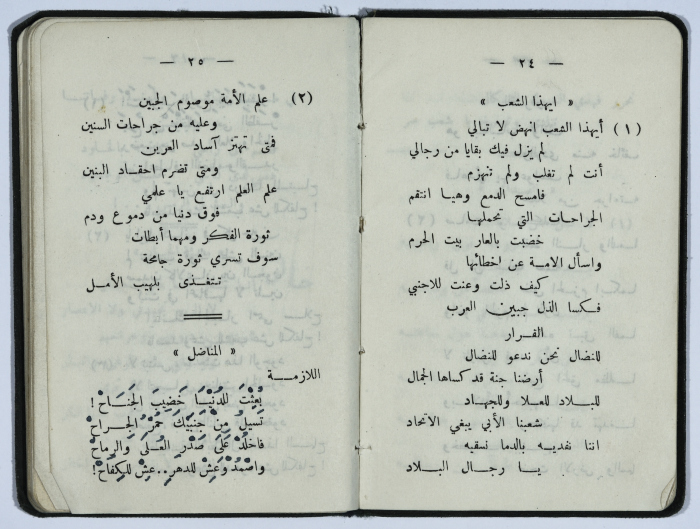 — ٢٤ —
« ايهذا الشعب »
(١) أيهذا الشعب انهض لا تبالي
لم يزل فيك بقايا من رجالي
أنت لم تغلب ولم تنهزم
فامسح الدمع وهيا انتقم
الجراحات التي تحملها
خضبت بالعار بيت الحرم
واسأل الامة عن اخطائها
كيف ذلت وعنت للاجنبي
فكسا الذل جبين العرب
القرار
للنضال نحن ندعو للنضال
أرضنا جنة قد كساها الجمال
للبلاد للعلا وللجهاد
شعبنا الأبي يبغي الاتحاد
اننا نفديه بالدما نسقيه
يا رجال البلاد
— ٢٥ —
(٢) علم الأمة موصوم الجبين
وعليه من جراحات السنين
فمتى تهتز آساد العرين
ومتى تضرم احقاد البنين
علم العلم ارتفع يا علمي
فوق دنيا من دموع ودم
ثورة الفكر ومهما أبطات
سوف تسري ثورة جامحة
تتغذى بلهيب الأمل
« المناضل »
اللازمة
بُعثْتَ للدُنْيَا خَضيبَ الجَنَاحْ !
تَسيلُ مِنْ جَنبَيْكَ حُمْرُ الجراحْ
فاخلُدْ عَلَى صَدْرِ العُلَى والرماحْ
واصْمُدْ وَعِشْ للدهرِ..عِشْ للكِفَاحْ!